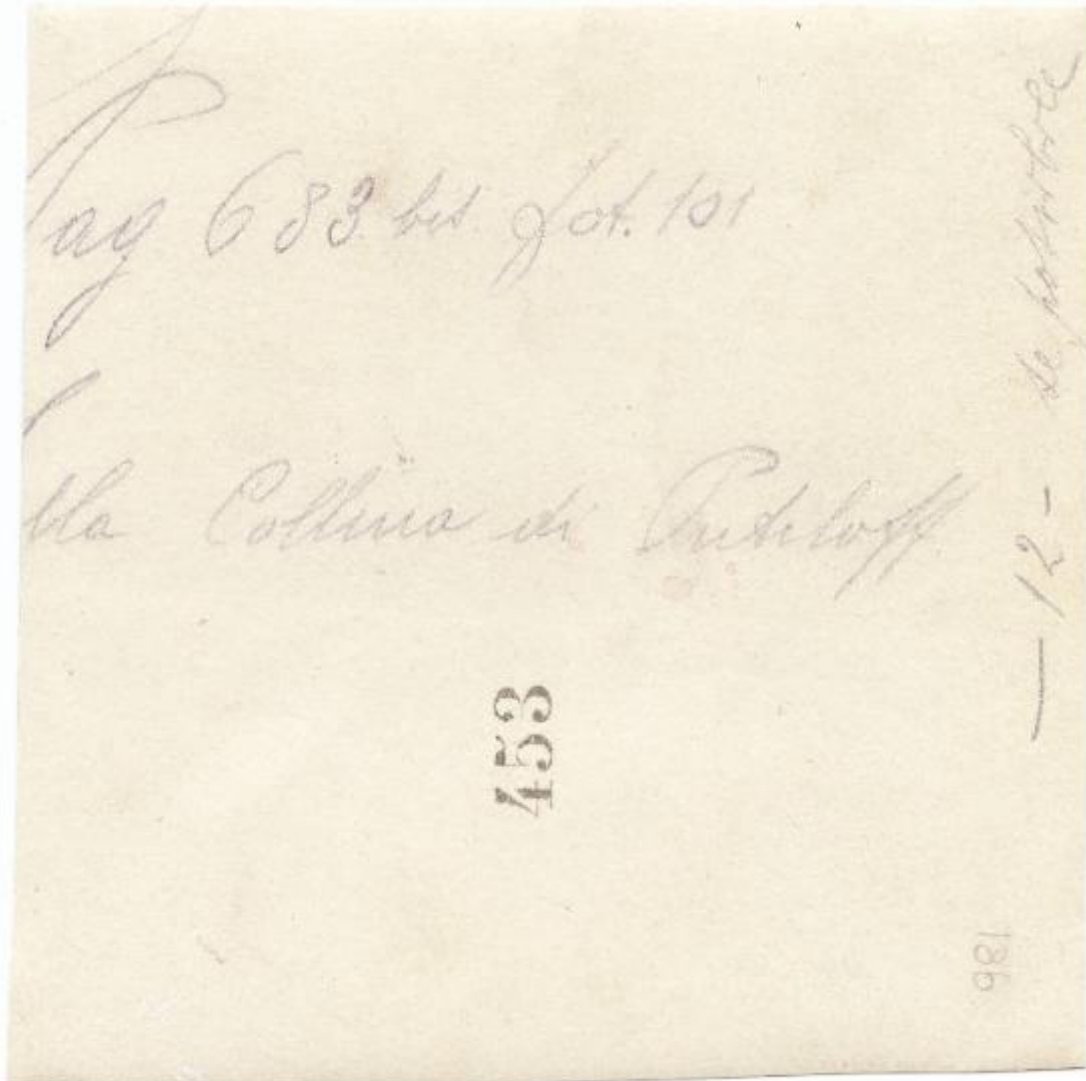 Pag 683 bis fot. 101
lla Collina di Putiloff
453
— 12 -
186